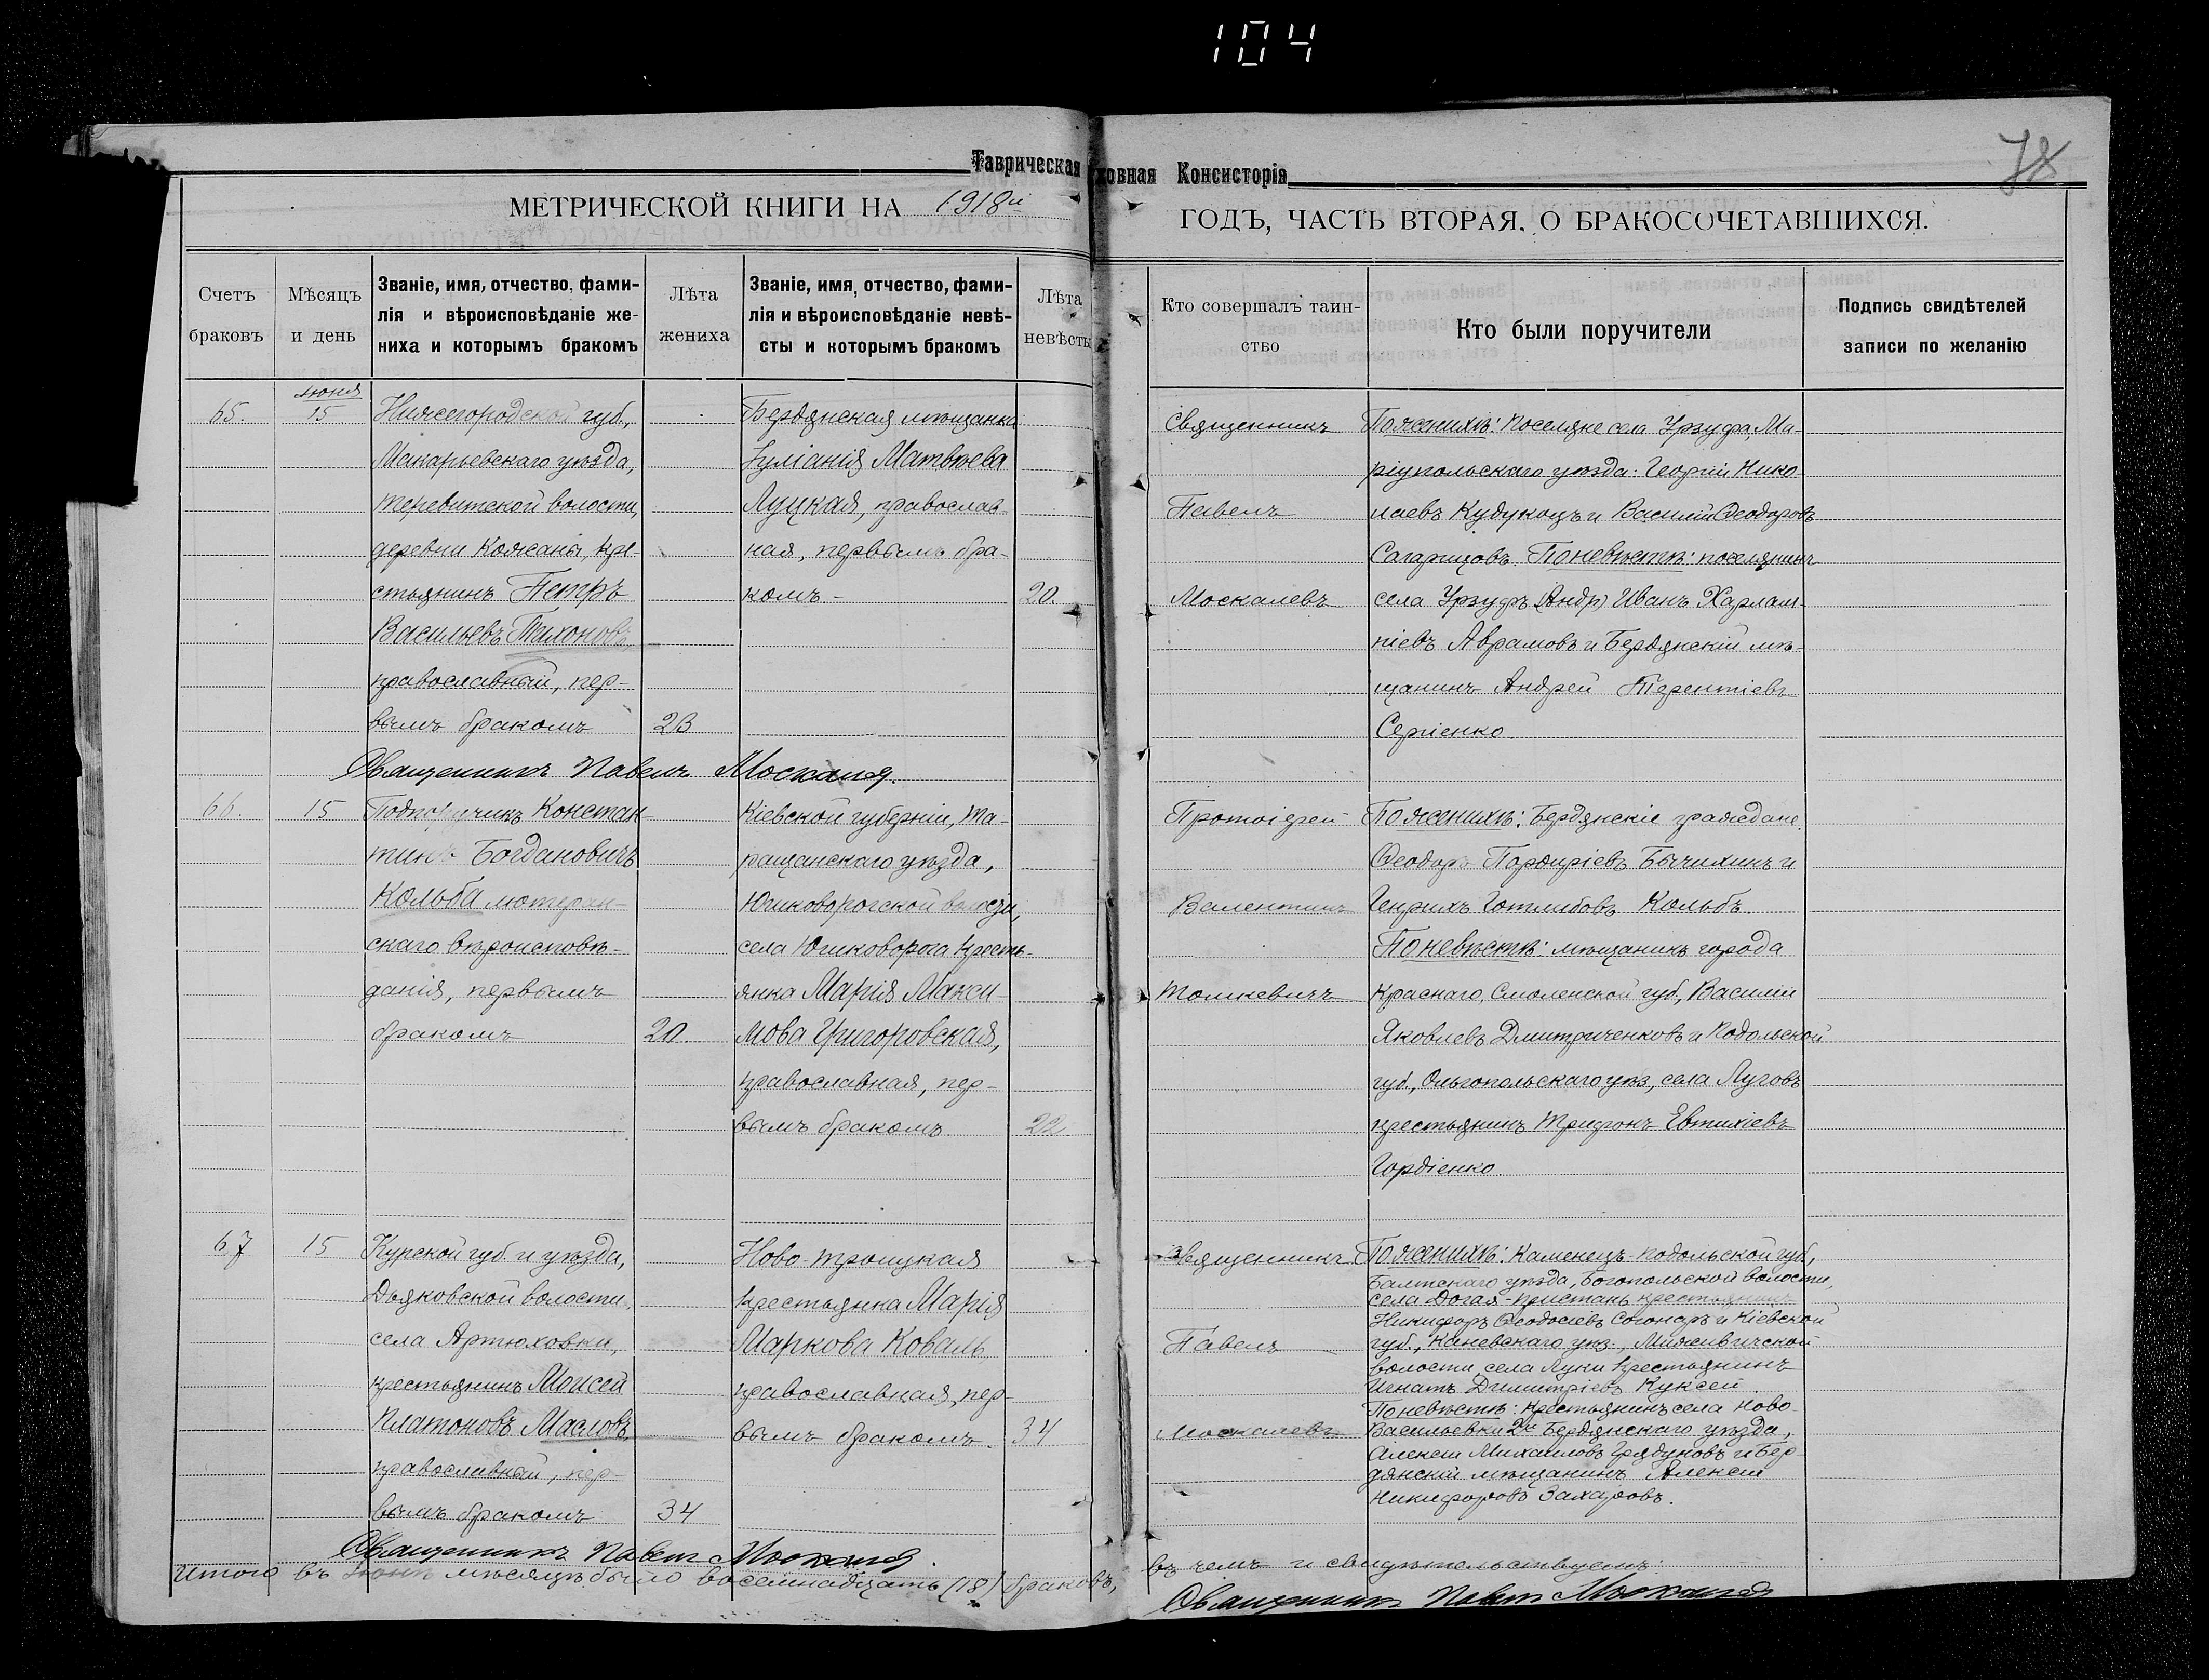 104
78
Таврическая
ховная Консисторія
МЕТРИЧЕСКОЙ КНИГИ НА 1918й
ГОДЪ, ЧАСТЬ ВТОРАЯ, О БРАКОСОЧЕТАВШИХСЯ.
Счетъ браковъ
Мѣсяцъ и день
Званіе, имя, отчество, фами-
лія и вѣроисповѣданіе же-
ниха и которымъ бракомъ
Лѣта жениха
Званіе, имя, отчество, фами-
лія и вѣроисповѣданіе невѣ-
сты и которымъ бракомъ
Лѣта невѣсты
Кто совершалъ таин-
ство
Кто были поручители
Подпись свидѣтелей
записи по желанію
65.
Іюня
15
Нижегородской губ.,
Макарьевскаго уѣзда,
деревни Кожаны, кре-
стьянинъ Петръ
Васильевъ Тихоновъ,
православный, пер-
вымъ бракомъ
23
Бердянская мѣщанка
Іуліанія Матвѣева
Луцкая, православ-
ная, первымъ бра-
комъ -
20.
Священникъ
Павелъ
Москалевъ
По женихѣ: поселяне села Урзуфа, Ма-
ріупольскаго уѣзда: Георгій Нико-
лаевъ и Василій Ѳеодоровъ
По невѣстѣ: поселянинъ
села Урзуфъ (Андр) Иванъ Харлам-
піевъ Аврамовъ и Бердянскій мѣ-
щанинъ Андрей Терентіевъ
Сергіенко.
Священникъ Павелъ Москалев.
66.
15
Подпоручикъ Констан-
тинъ Богдановичъ
Кольба лютеран-
скаго вѣроисповѣ-
данія, первымъ
бракомъ
20.
Кіевской губерніи, Та-
ращанскаго уѣзда,
волости,
села кресть-
янка Марія Макси-
мова Григоровская,
православная, пер-
вымъ бракомъ
22
Протоіерей
Валентинъ
Томкевичъ
По женихѣ: Бердянскіе граждане
Ѳеодоръ Порфиріевъ Бычихинъ и
Генрихъ Готлибовъ Кольбъ.
По невѣстѣ: мѣщанинъ города
Краснаго, Смоленской губ., Василій
Яковлевъ Дмитриченковъ и Подольской
губ., Ольгопольскаго уѣз., села Луговъ
крестьянинъ Трифонъ Евтихіевъ
Гордіенко.
67
15
Курской губ. и уѣзда,
Дьяковской волости,
села Артюховки,
крестьянинъ Моисей
Платоновъ Масловъ,
православный, пер-
вымъ бракомъ
34
Ново-троицкая
крестьянка Марія
Маркова Коваль
православная, пер-
вымъ бракомъ.
34
Священникъ
Павелъ
Москалевъ
По женихѣ: Каменецъ-Подольской губ.,
Балтскаго уѣзда, Богопольской волости,
села Догая-Пристань крестьянинъ
Никифоръ Ѳеодосіевъ и Кіевской
губ., Каневскаго уѣз.,
волости, села Луки крестьянинъ
Игнатъ Димитріевъ Куксей
По невѣстѣ: крестьянинъ села Ново-
Васильевки 2й Бердянскаго уѣзда,
Алексій Михаиловъ Грядуновъ и Бер-
дянскій мѣщанинъ Алексій
Никифоровъ Захаровъ.
Священникъ Павел Москалев.
Итого въ Іюнѣ мѣсяцѣ было восемнадцать (18) браковъ,
въ чемъ и свидѣтельствуемъ:
Священникъ Павел Москалев